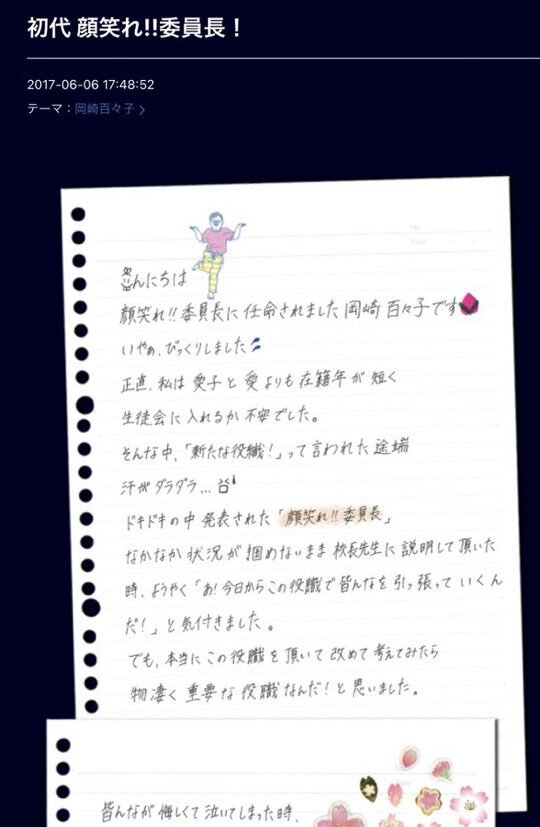 初代 顔笑れ!!委員長！
2017-06-06 17:48:52
テーマ：岡崎百々子 >
こんにちは
顔笑れ!!委員長に任命されました岡崎百々子です
いやぁ、びっくりしました
正直、私は愛子と愛よりも在籍年が短く
生徒会に入れるか不安でした。
そんな中、「新たな役職！」って言われた途端
汗がダラダラ...
ドキドキの中発表された「顔笑れ!!委員長」
なかなか状況が掴めないまま校長先生に説明して頂いた
時、ようやく「あ！今日からこの役職で皆んなを引っ張っていくん
だ！」と気付きました。
でも、本当にこの役職を頂いて改めて考えてみたら
物凄く重要な役職なんだ！と思いました。
皆んなが悔しくて泣いてしまった時、